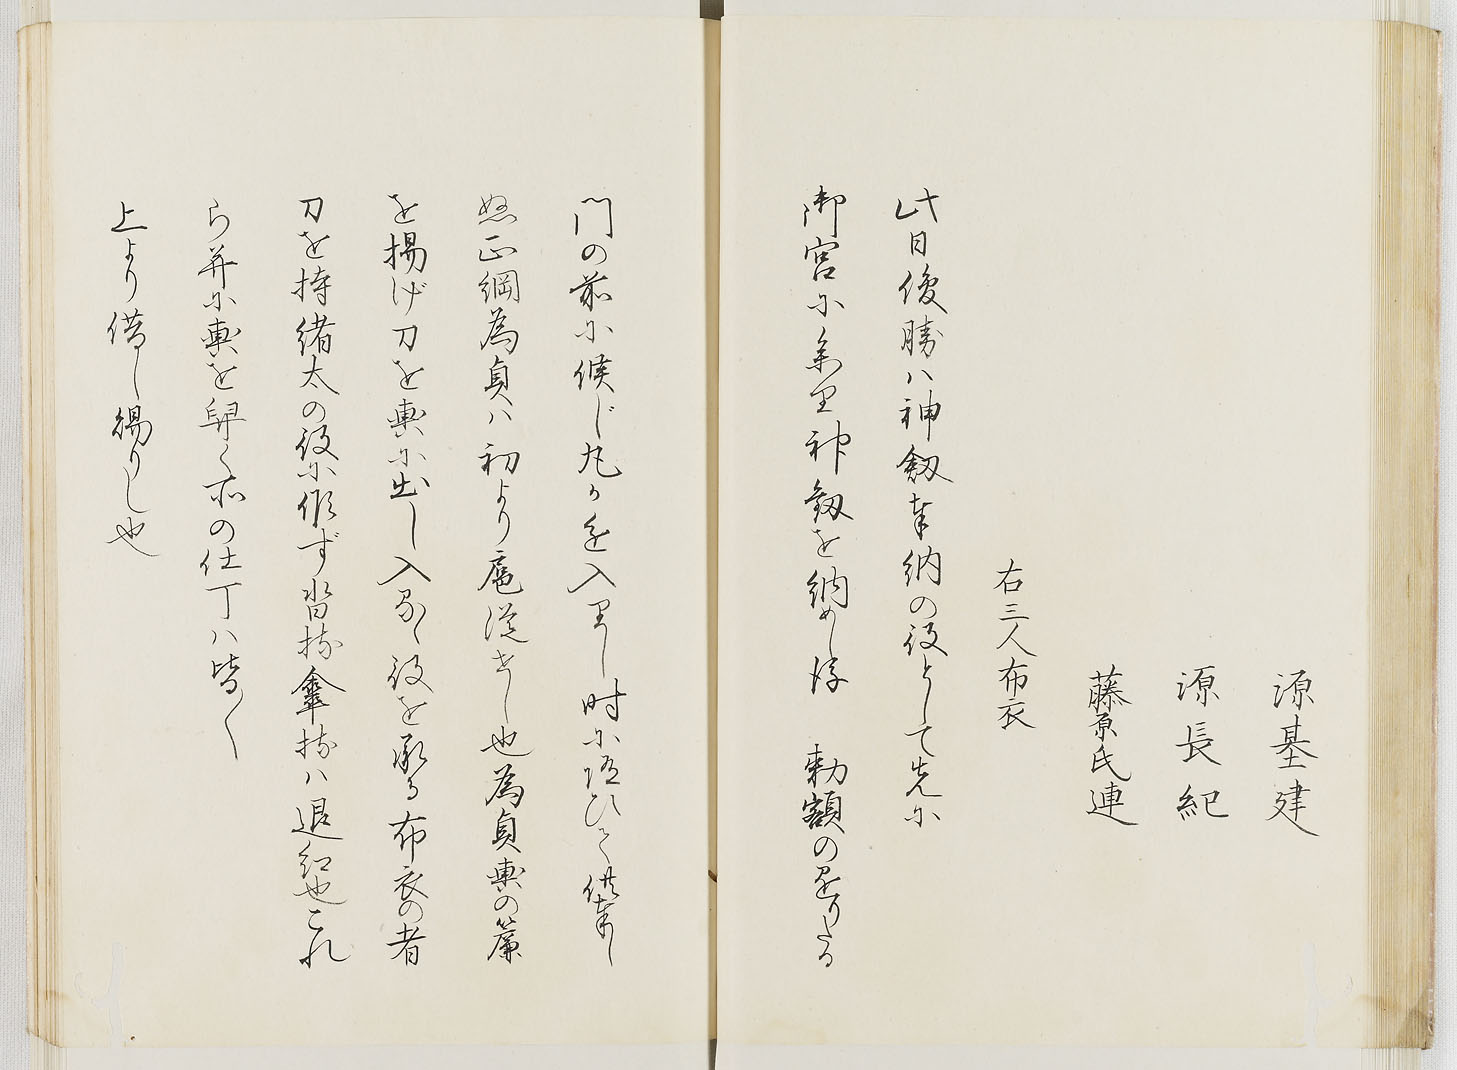 源基建
源長紀
藤原氏連
右三人布衣
此日俊勝ハ神劔奉納の役として先に
御宮に参り神劔を納めし後　勅額の至りたる
門の前に候し丸か迄入りし時に従ひて供奉し
正綱為貞ハ初より扈従せし也為貞輿の簾
を揚げ刀を輿に出し入るゝ役を承る布衣の者
刀を持緒太の役に候ず沓持傘持ハ退紅也これ
ら并に輿を舁く所の仕丁ハ皆〳〵
上より借し賜りし也